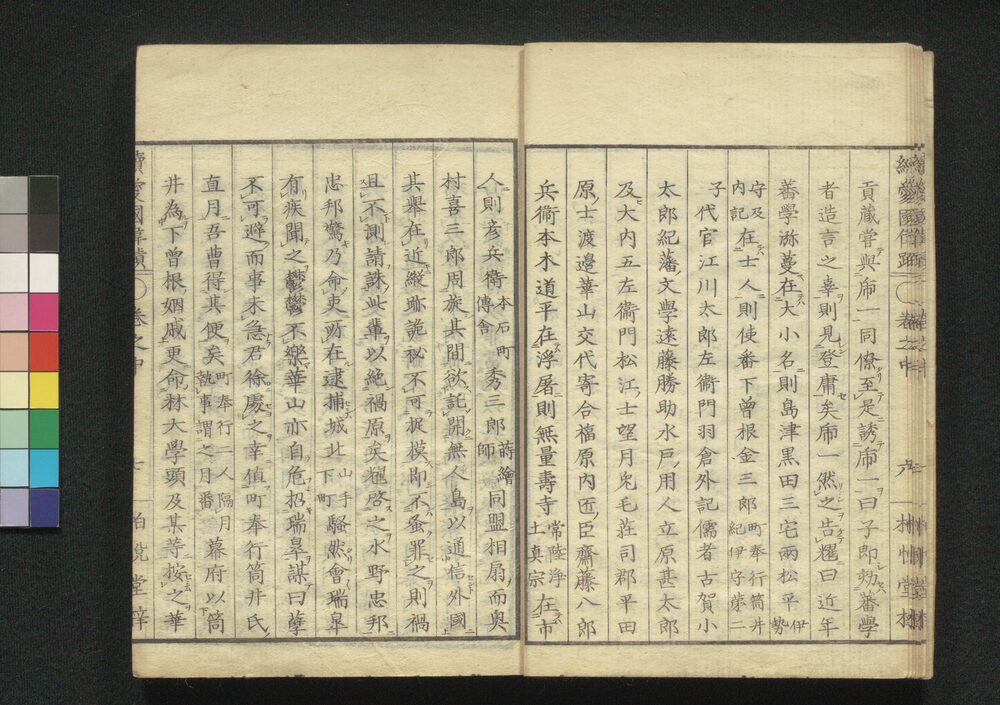 貢蔵嘗與帍一同僚至是誘帍一曰子即劾蕃學
者造言之辜則見登庸矣帍一然之告耀曰近年
蕃學漸蔓在大小名則島津黒田三宅兩松平伊勢
守及内記在士人則使番下曾根金三郎町奉行筒井紀伊守第二
子代官江川太郎左衞門羽倉外記儒者古賀小
太郎紀藩文學遠藤勝助水戸用人立原甚太郎
及大内五左衞門松江士望月兔毛莊司郡平田
原士渡邊華山交代寄合福原内匠臣齋藤八郎
兵衞本木道平在浮屠則無量壽寺常陸淨土真宗在市
人則彦兵衞本石町傳舎秀三郎蒔繪師同盟相扇而奥
村喜三郎周旋其間欲託開無人島以通信外國
其舉在近縱跡詭秘不可捉模即不蚤罪之則禍
且不測請誅此輩以絶禍原矣耀啓之水野忠邦
忠邦驚乃命吏所在逮捕城北山手下町騷然會瑞皐
有疾聞之鬱鬱不樂華山亦自危招瑞皐謀曰孽
不可避而事未急君徐處之幸値町奉行筒井氏
直月吾曹得其便矣町奉行二人隔月執事謂之月番幕府以筒
井為下曾根姻戚更命林大學頭及某等按之華
續愛國偉蹟
卷之中
七